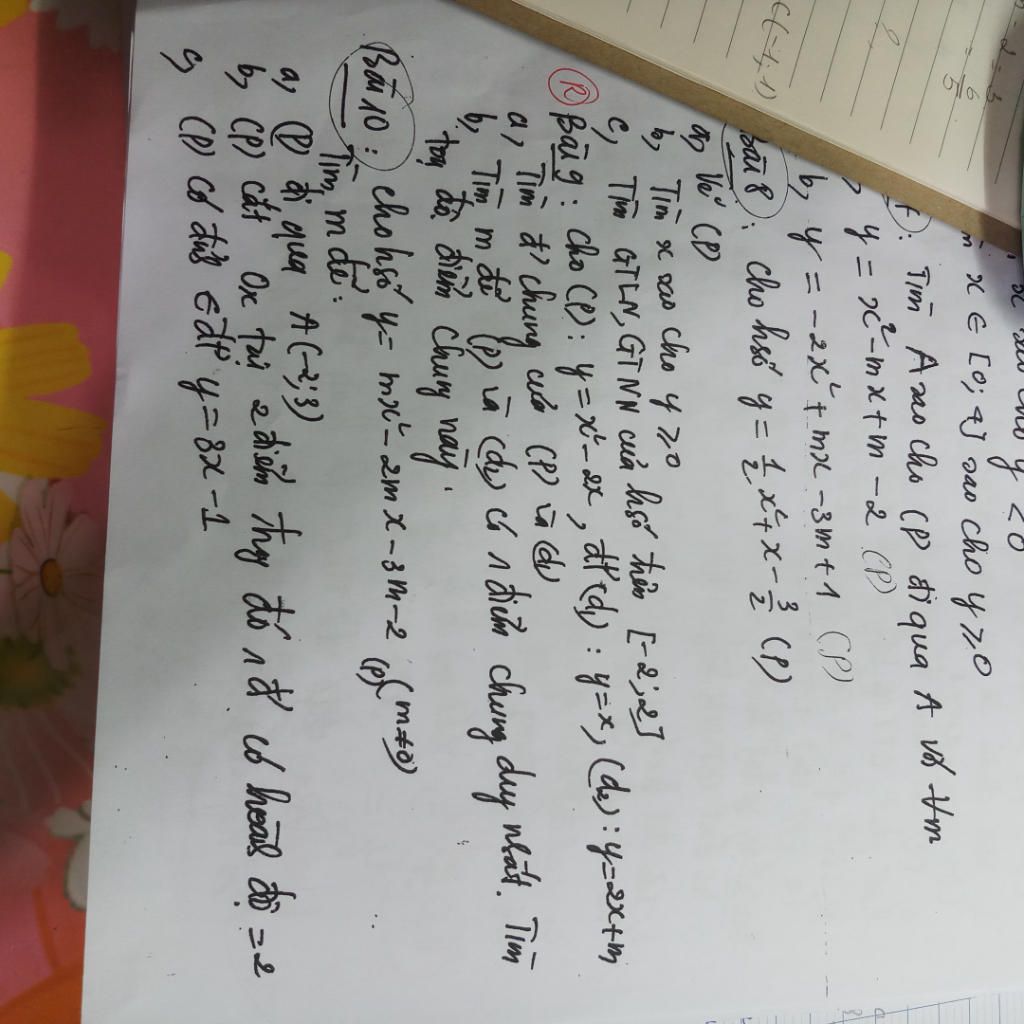 x sao cho y < 0
x ∈ [0; 4] sao cho y ≥ 0
: Tìm A sao cho (P) đi qua A với ∀m
y = x² - mx + m - 2 (P)
b, y = -2x² + mx - 3m + 1 (P)
Bài 8: cho hsố y = 1/2 x² + x - 3/2 (P)
a, Vẽ (P)
b, Tìm x sao cho y ≥ 0
c, Tìm GTLN, GTNN của hsố trên [-2; 2]
R
Bài 9: cho (P): y = x² - 2x, đt (d₁): y = x, (d₂): y = 2x + m
a, Tìm đ' chung của (P) và (d₁)
b, Tìm m để (P) và (d₂) có 1 điểm chung duy nhất. Tìm
toạ độ điểm chung này.
Bài 10: cho hsố y = mx² - 2mx - 3m - 2 (P) (m ≠ 0)
Tìm m để:
a, (P) đi qua A(-2; 3)
b, (P) cắt Ox tại 2 điểm trong đó 1 đ' có hoành độ = 2
c, (P) có đỉnh ∈ đt y = 3x - 1
- 2 - 3
= 6/5
(-1, 1)